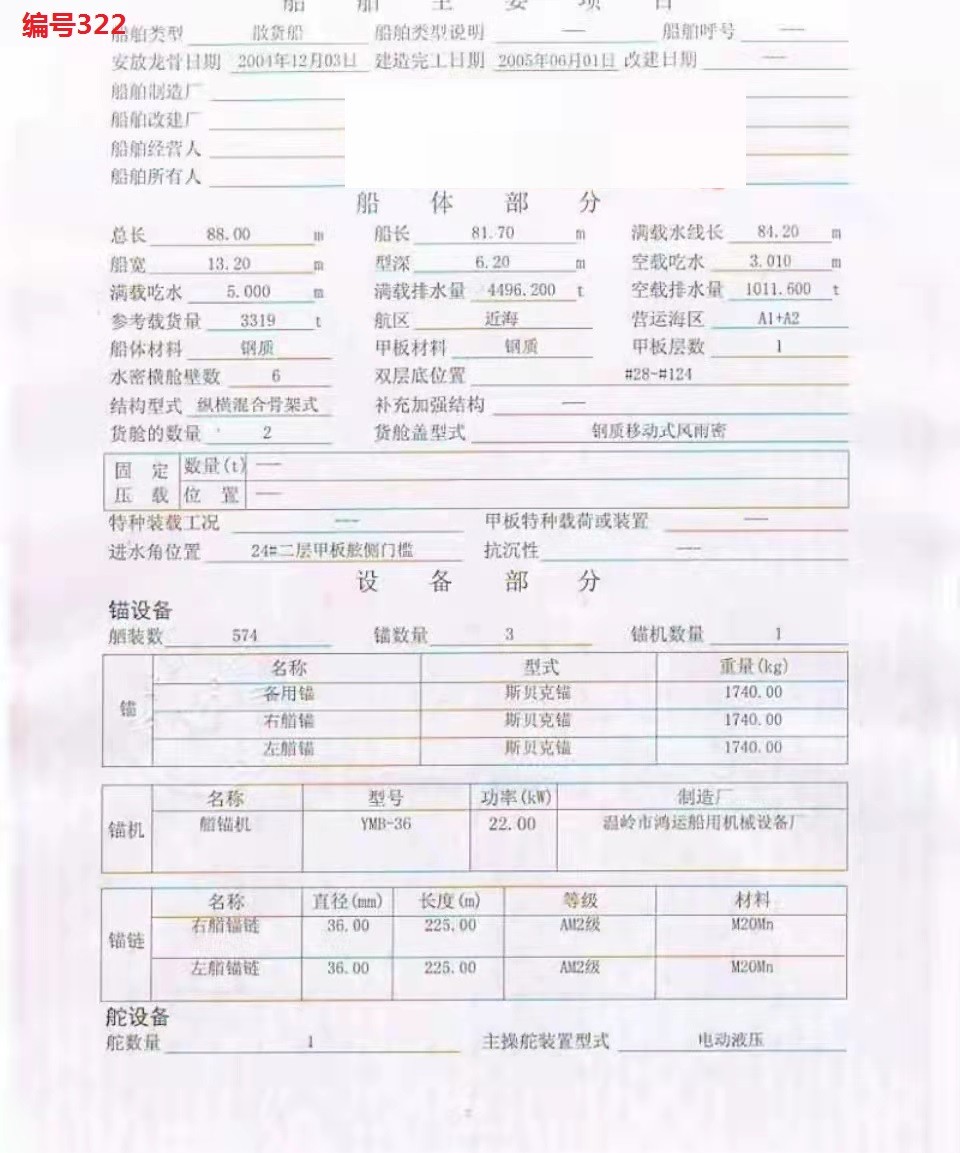 编号322
船舶主要项目
船舶类型 散货船 船舶类型说明 — 船舶呼号 —
安放龙骨日期 2004年12月03日 建造完工日期 2005年06月01日 改建日期 —
船舶制造厂
船舶改建厂
船舶经营人
船舶所有人
船体部分
总长 88.00 m 船长 81.70 m 满载水线长 84.20 m
船宽 13.20 m 型深 6.20 m 空载吃水 3.010 m
满载吃水 5.000 m 满载排水量 4496.200 t 空载排水量 1011.600 t
参考载货量 3319 t 航区 近海 营运海区 A1+A2
船体材料 钢质 甲板材料 钢质 甲板层数 1
水密横舱壁数 6 双层底位置 #28-#124
结构型式 纵横混合骨架式 补充加强结构 —
货舱的数量 2 货舱盖型式 钢质移动式风雨密
固定压载 数量(t) —
位置 —
特种装载工况 — 甲板特种载荷或装置 —
进水角位置 24#二层甲板舷侧门槛 抗沉性 —
设备部分
锚设备
舾装数 574 锚数量 3 锚机数量 1
锚 名称 型式 重量(kg)
备用锚 斯贝克锚 1740.00
右艏锚 斯贝克锚 1740.00
左艏锚 斯贝克锚 1740.00
锚机 名称 型号 功率(kW) 制造厂
艏锚机 YMB-36 22.00 温岭市鸿运船用机械设备厂
锚链 名称 直径(mm) 长度(m) 等级 材料
右艏锚链 36.00 225.00 AM2级 M20Mn
左艏锚链 36.00 225.00 AM2级 M20Mn
舵设备
舵数量 1 主操舵装置型式 电动液压